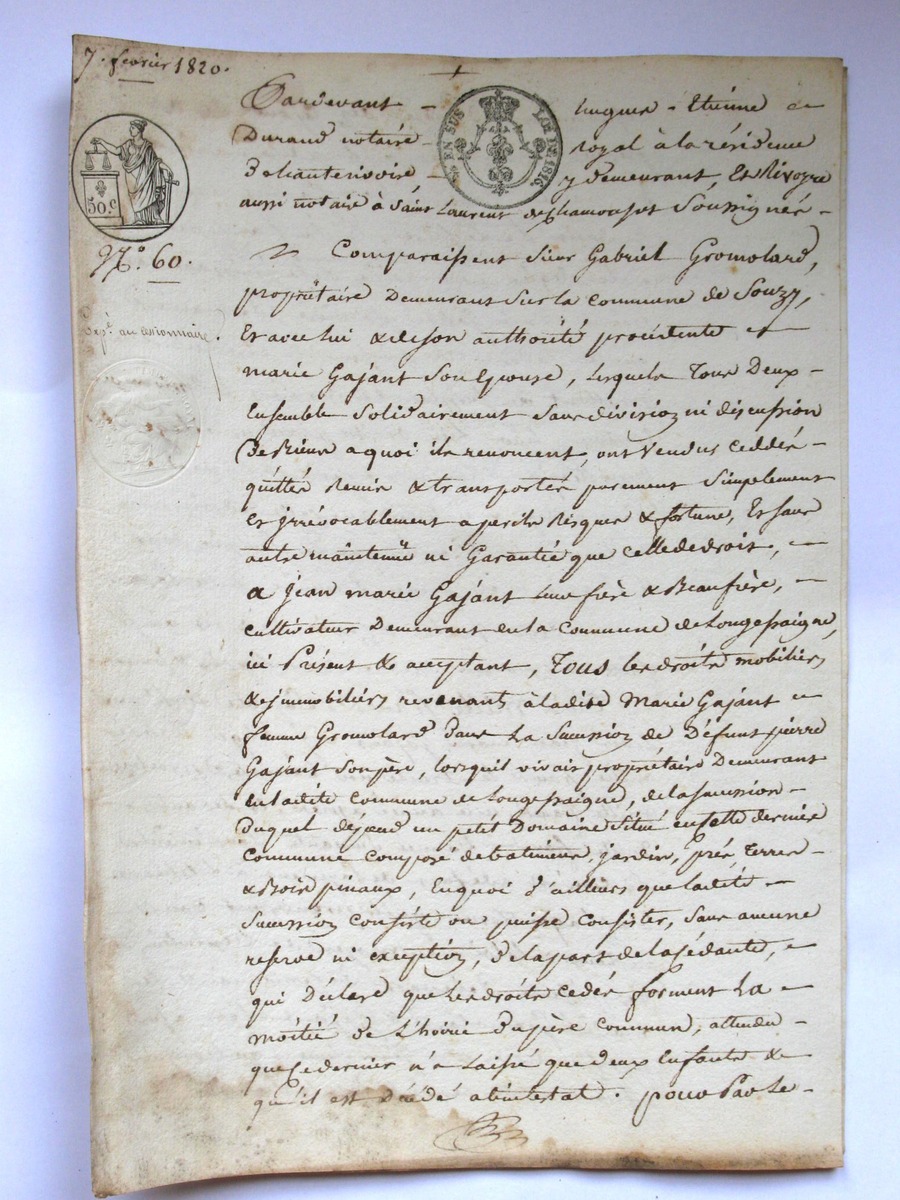 7. fevrier 1820.
Pardevant Hugues - Etiénne
EN SUS LOI DE 1816.
Durand notaire royal à la résidence
de hauterivoire y demeurant, Et Rivoyre
aussi notaire à Saint Laurent de chamousset Soussignés
50.c
N.o 60.
Comparaissent sieur Gabriel Gromolard,
propriétaire Demeurant sur la commune de Souzy,
Exp.é au cessionnaire.
Et avec lui & de son authorité procédente
marie Gajant son Epouse, lesquels Tous Deux
Ensemble solidairement sans division ni discussion
De Biens a quoi ils renoncent, ont vendus ceddés
quittés Remis & transportés purement Simplement
et jrrévocablement a perils Risques & fortune, Et sans
autre maintenue ni Garantie que celle de droit,
a jean marie Gajant leur frère & Beaufrère,
cultivateur Demeurant en la commune de Longessaigne,
ici Présent & acceptant, Tous les droits mobiliers
& jmmobiliers revenants à ladite Marie Gajant
femme Gromolard dans La Succession de Défunt pierre
Gajant son père, lorsquil vivait propriétaire Demeurant
en ladite commune de Longessaigne, de la succession
Duquel dépend un petit Domaine situé en cette dernière
commune composé de batiments, jardin, prés, Terres
& Bois pinaux, En quoi d'ailleurs que ladite
Succession consiste ou puisse consister, sans aucune
reserve ni exception, de la part de la sédante,
qui Déclare que les droits cédés forment La
moitié de L'hoirie du père commun, attendu
que ce dernier n'a Laissé que Deux Enfants &
qu'il est Décédé abintestat. pour Par Le